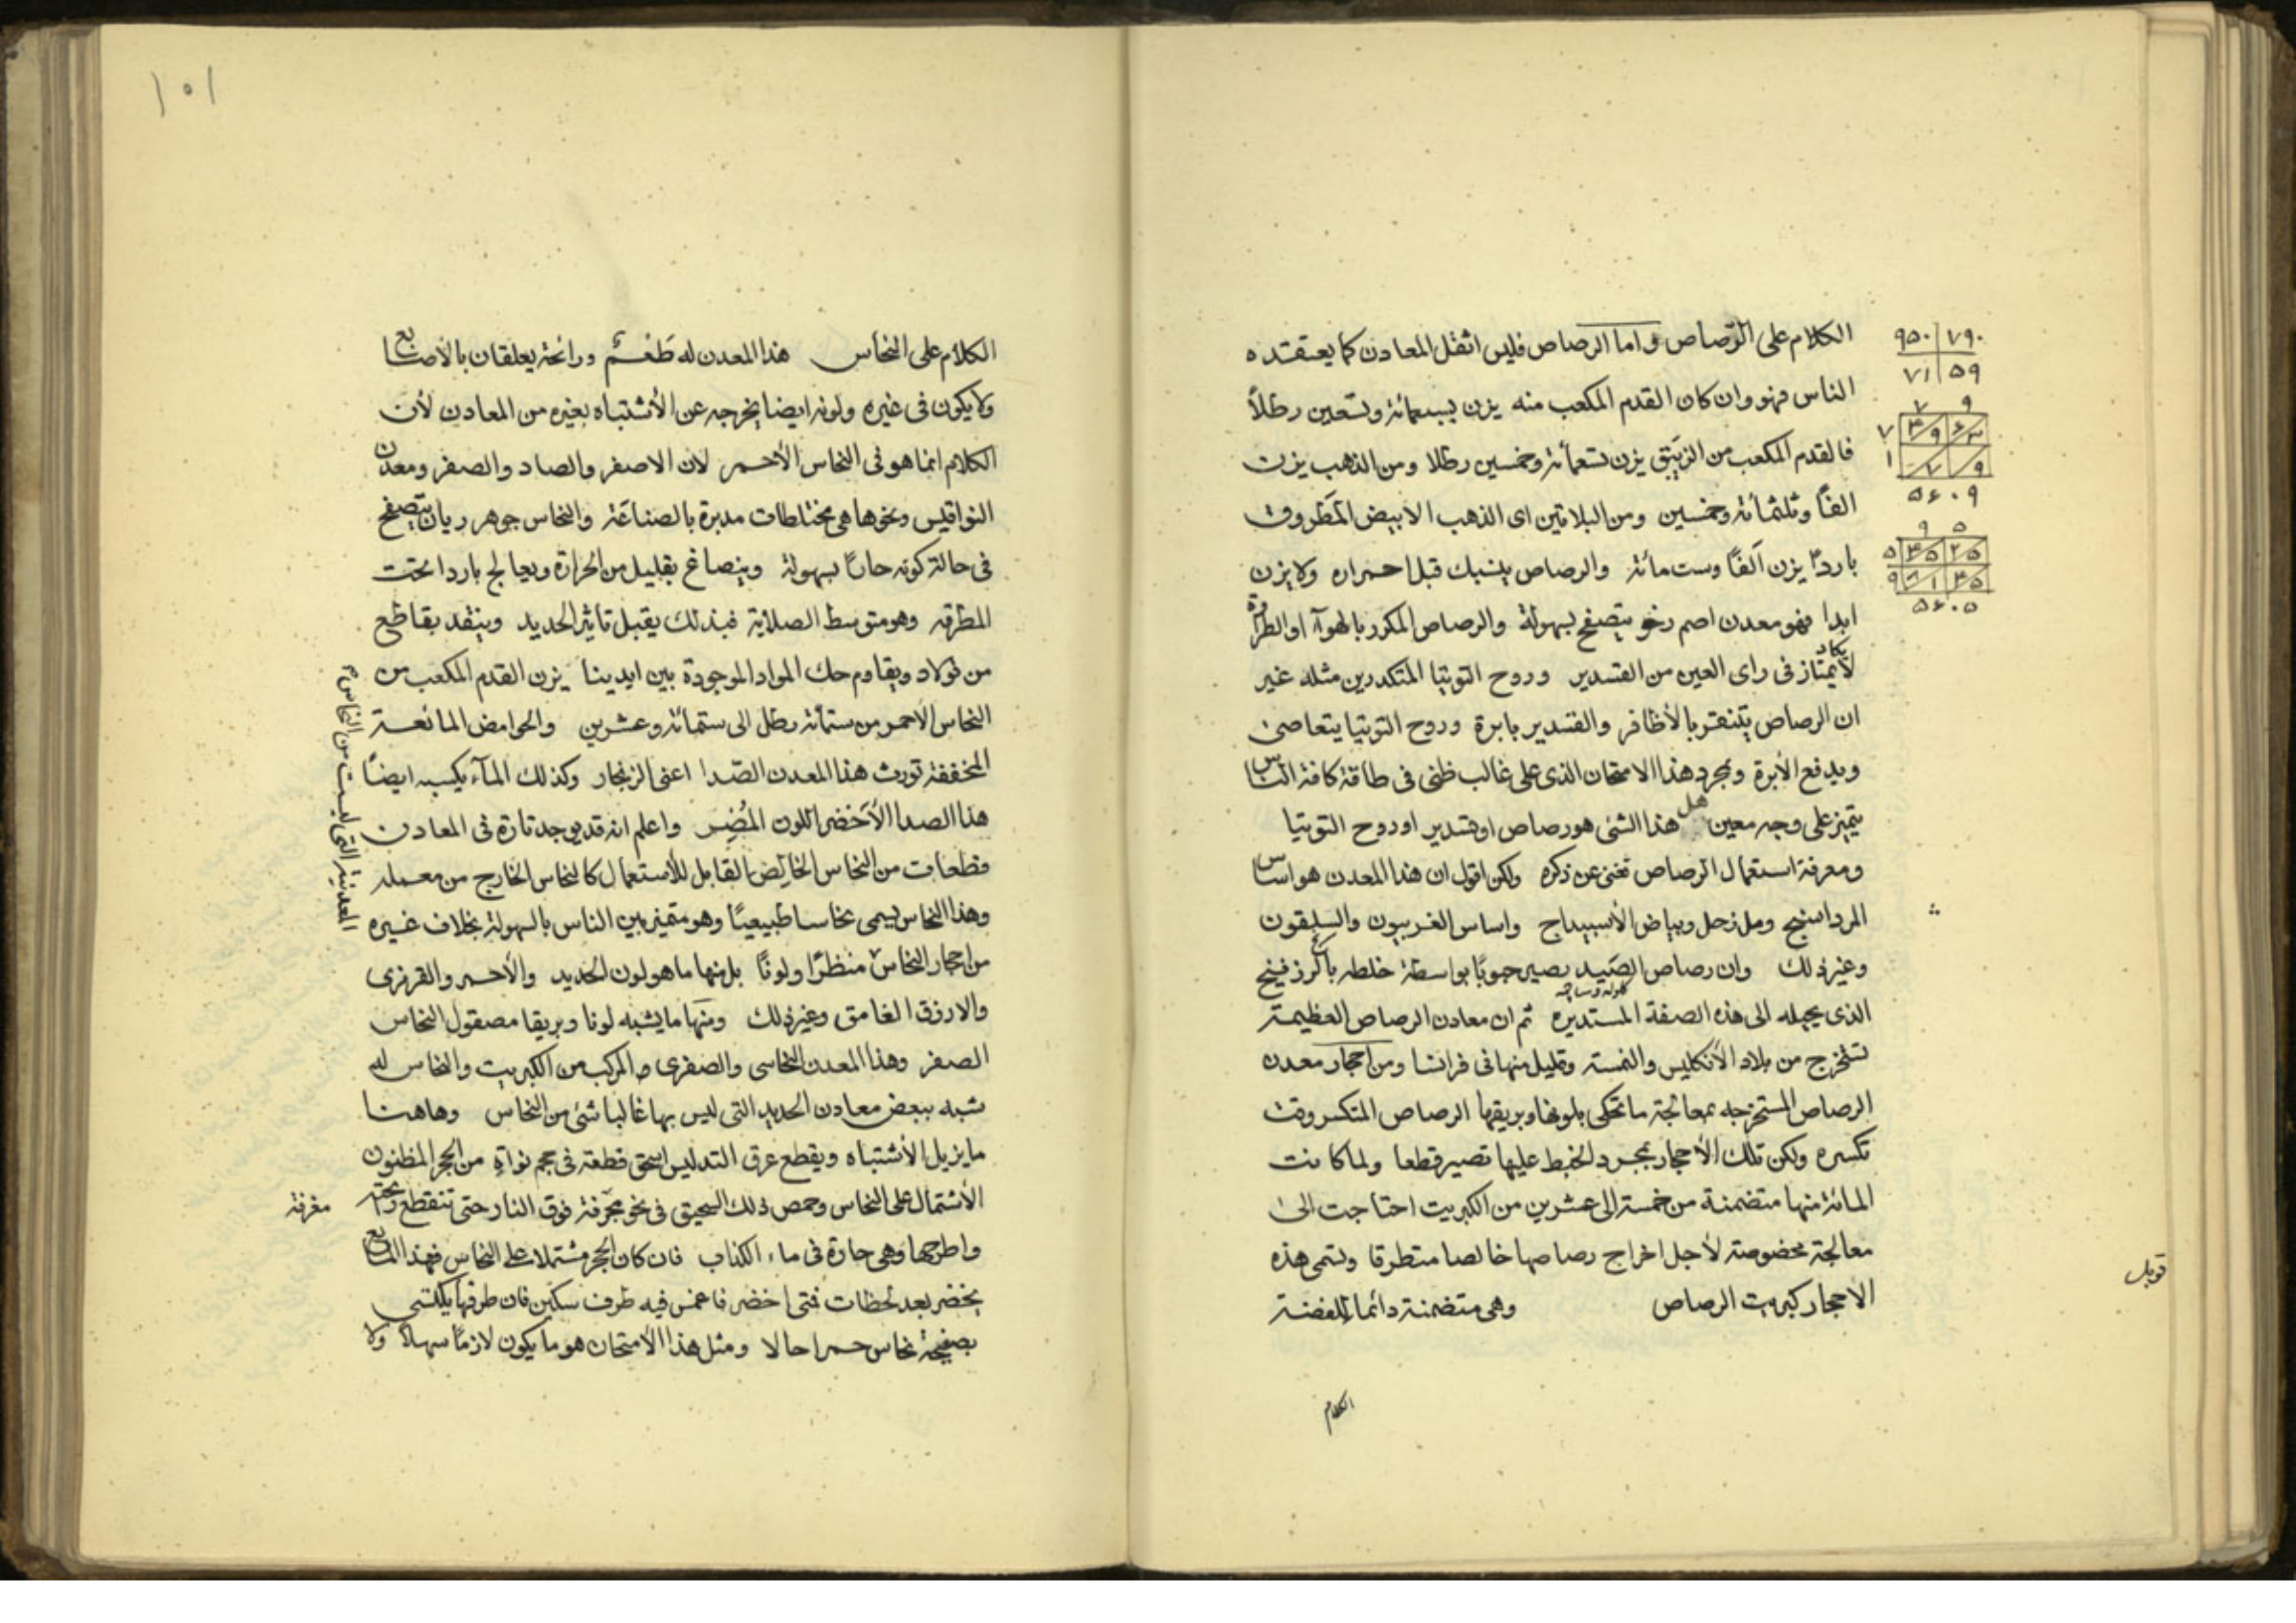 الكلام على الرصاص واما الرصاص فليس اثقل المعادن كما يعتقده
الناس فهو وان كان القدم المكعب منه يزن بسبعمائة وتسعين رطلاً
فالقدم المكعب من الزيبق يزن تسعمائة وخمسين رطلا ومن الذهب يزن
الفاً وثلثمائة وخمسين ومن البلاتين اى الذهب الابيض المطروق
بارداً يزن الفًا وست مائة والرصاص ينسبك قبل احمراره ولا يزن
ابدا فهو معدن اصم رخو يتصفح بسهولة والرصاص المكرر بالهوآء او الطراوة
لا يكاد يمتاز فى راى العين من القسدير وروح التوتيا المتكدرين مثله غير
ان الرصاص يتنقر بالأظافر والقسدير بابرة وروح التوتيا يتعاصى
ويدفع الأبرة وبمجرد هذا الامتحان الذى على غالب ظنى فى طاقة كافة الناس
يتميز على وجه معين هل هذا الشئ هو رصاص او قسدير او روح التوتيا
ومعرفة استعمال الرصاص تغنى عن ذكره ولكن اقول ان هذا المعدن هو اساس
المرداسنج وملح زحل وبياض الأسبيداج واساس الغربيون والسليقون
وغير ذلك وان رصاص الصيد يصير حبوبًا بواسطة خلطه بالزرنيخ
الذى يحيله الى هذه الصفة المستديره ثم ان معادن الرصاص العظيمة
تستخرج من بلاد الأنكليس والنمسة وقليل منها فى فرانسا ومن احجار معدن
الرصاص المستخرجه بمعالجة ما تحكى بلونها وبريقها الرصاص المتكسر وقت
تكسره ولكن تلك الأحجار بمجرد الخبط عليها تصير قطعا ولما كانت
المائة منها متضمنة من خمسة الى عشرين من الكبريت احتاجت الى
معالجة مخصوصة لأجل اخراج رصاصها خالصا متطرقا وتسمى هذه
الاحجار كبريت الرصاص وهى متضمنة دائما للفضة
الكلام
٧٩٠ ٩٥٠
٥٩ ٧١
٥٦٠٩
٥٦٠٥
قوبل
١٠١
الكلام على النحاس هذا المعدن له طَعْمٌ ورائحة يعلقان بالأصابع
ولا يكون فى غيره ولونه ايضا يخرجه عن الأشتباه بغيره من المعادن لأن
الكلام انما هو فى النحاس الأحمر لان الاصفر والصاد والصفر ومعدن
النواقيس ونحوها هى مختلطات مدبرة بالصناعة والنحاس جوهر ريان يتصفح
فى حالة كونه حارًا بسهولة وينصاغ بقليل من الحرارة ويعالج باردا تحت
المطرقة وهو متوسط الصلابة فبذلك يقبل تاثير الحديد وينقد بقاطع
من فولاد ويقاوم حك المواد الموجودة بين ايدينا يزن القدم المكعب من
النحاس الاحمر من ستمائة رطل الى ستمائة وعشرين والحوامض المائعة
المخففة تورث هذا المعدن الصدا اعنى الزنجار وكذلك المآء يكسبه ايضًا
هذا الصدا الأخضر اللون المُضِر واعلم انه قد يوجد تارة فى المعادن
قطعات من النحاس الخالص القابل للأستعمال كالنحاس الخارج من معمله
وهذا النحاس يسمى نحاسا طبيعيًا وهو متميز بين الناس بالسهولة بخلاف غيره
من احجار النحاس منظرًا ولونًا بل منها ما هو لون الحديد والأحمر والقرمزى
والازرق الغامق وغير ذلك ومنها ما يشبه لونا وبريقا مصقول النحاس
الصفر وهذا المعدن النحاسى والصفرى والمركب من الكبريت والنحاس له
شبه ببعض معادن الحديد التى ليس بها غالبا شئ من النحاس وهاهنا
ما يزيل الأشتباه ويقطع عرق التدليس اسحق قطعة فى حجم نواة من الحجر المظنون
الأشتمال على النحاس وحمص ذلك السحيق فى نحو مجرفة فوق النار حتى تنقطع ريحته
واطرحها وهى حارة فى ماء الكذاب فان كان الحجر مشتملا على النحاس فهذا المائع
يخضر بعد لحظات فتى اخضر فاغمس فيه طرف سكين فان طرفها يكتسى
بصفيحة نحاس حمرا حالا ومثل هذا الأمتحان هو ما يكون لازمًا سهلاً ولا
المعدنية التى ليست من النحاس
مغرفة